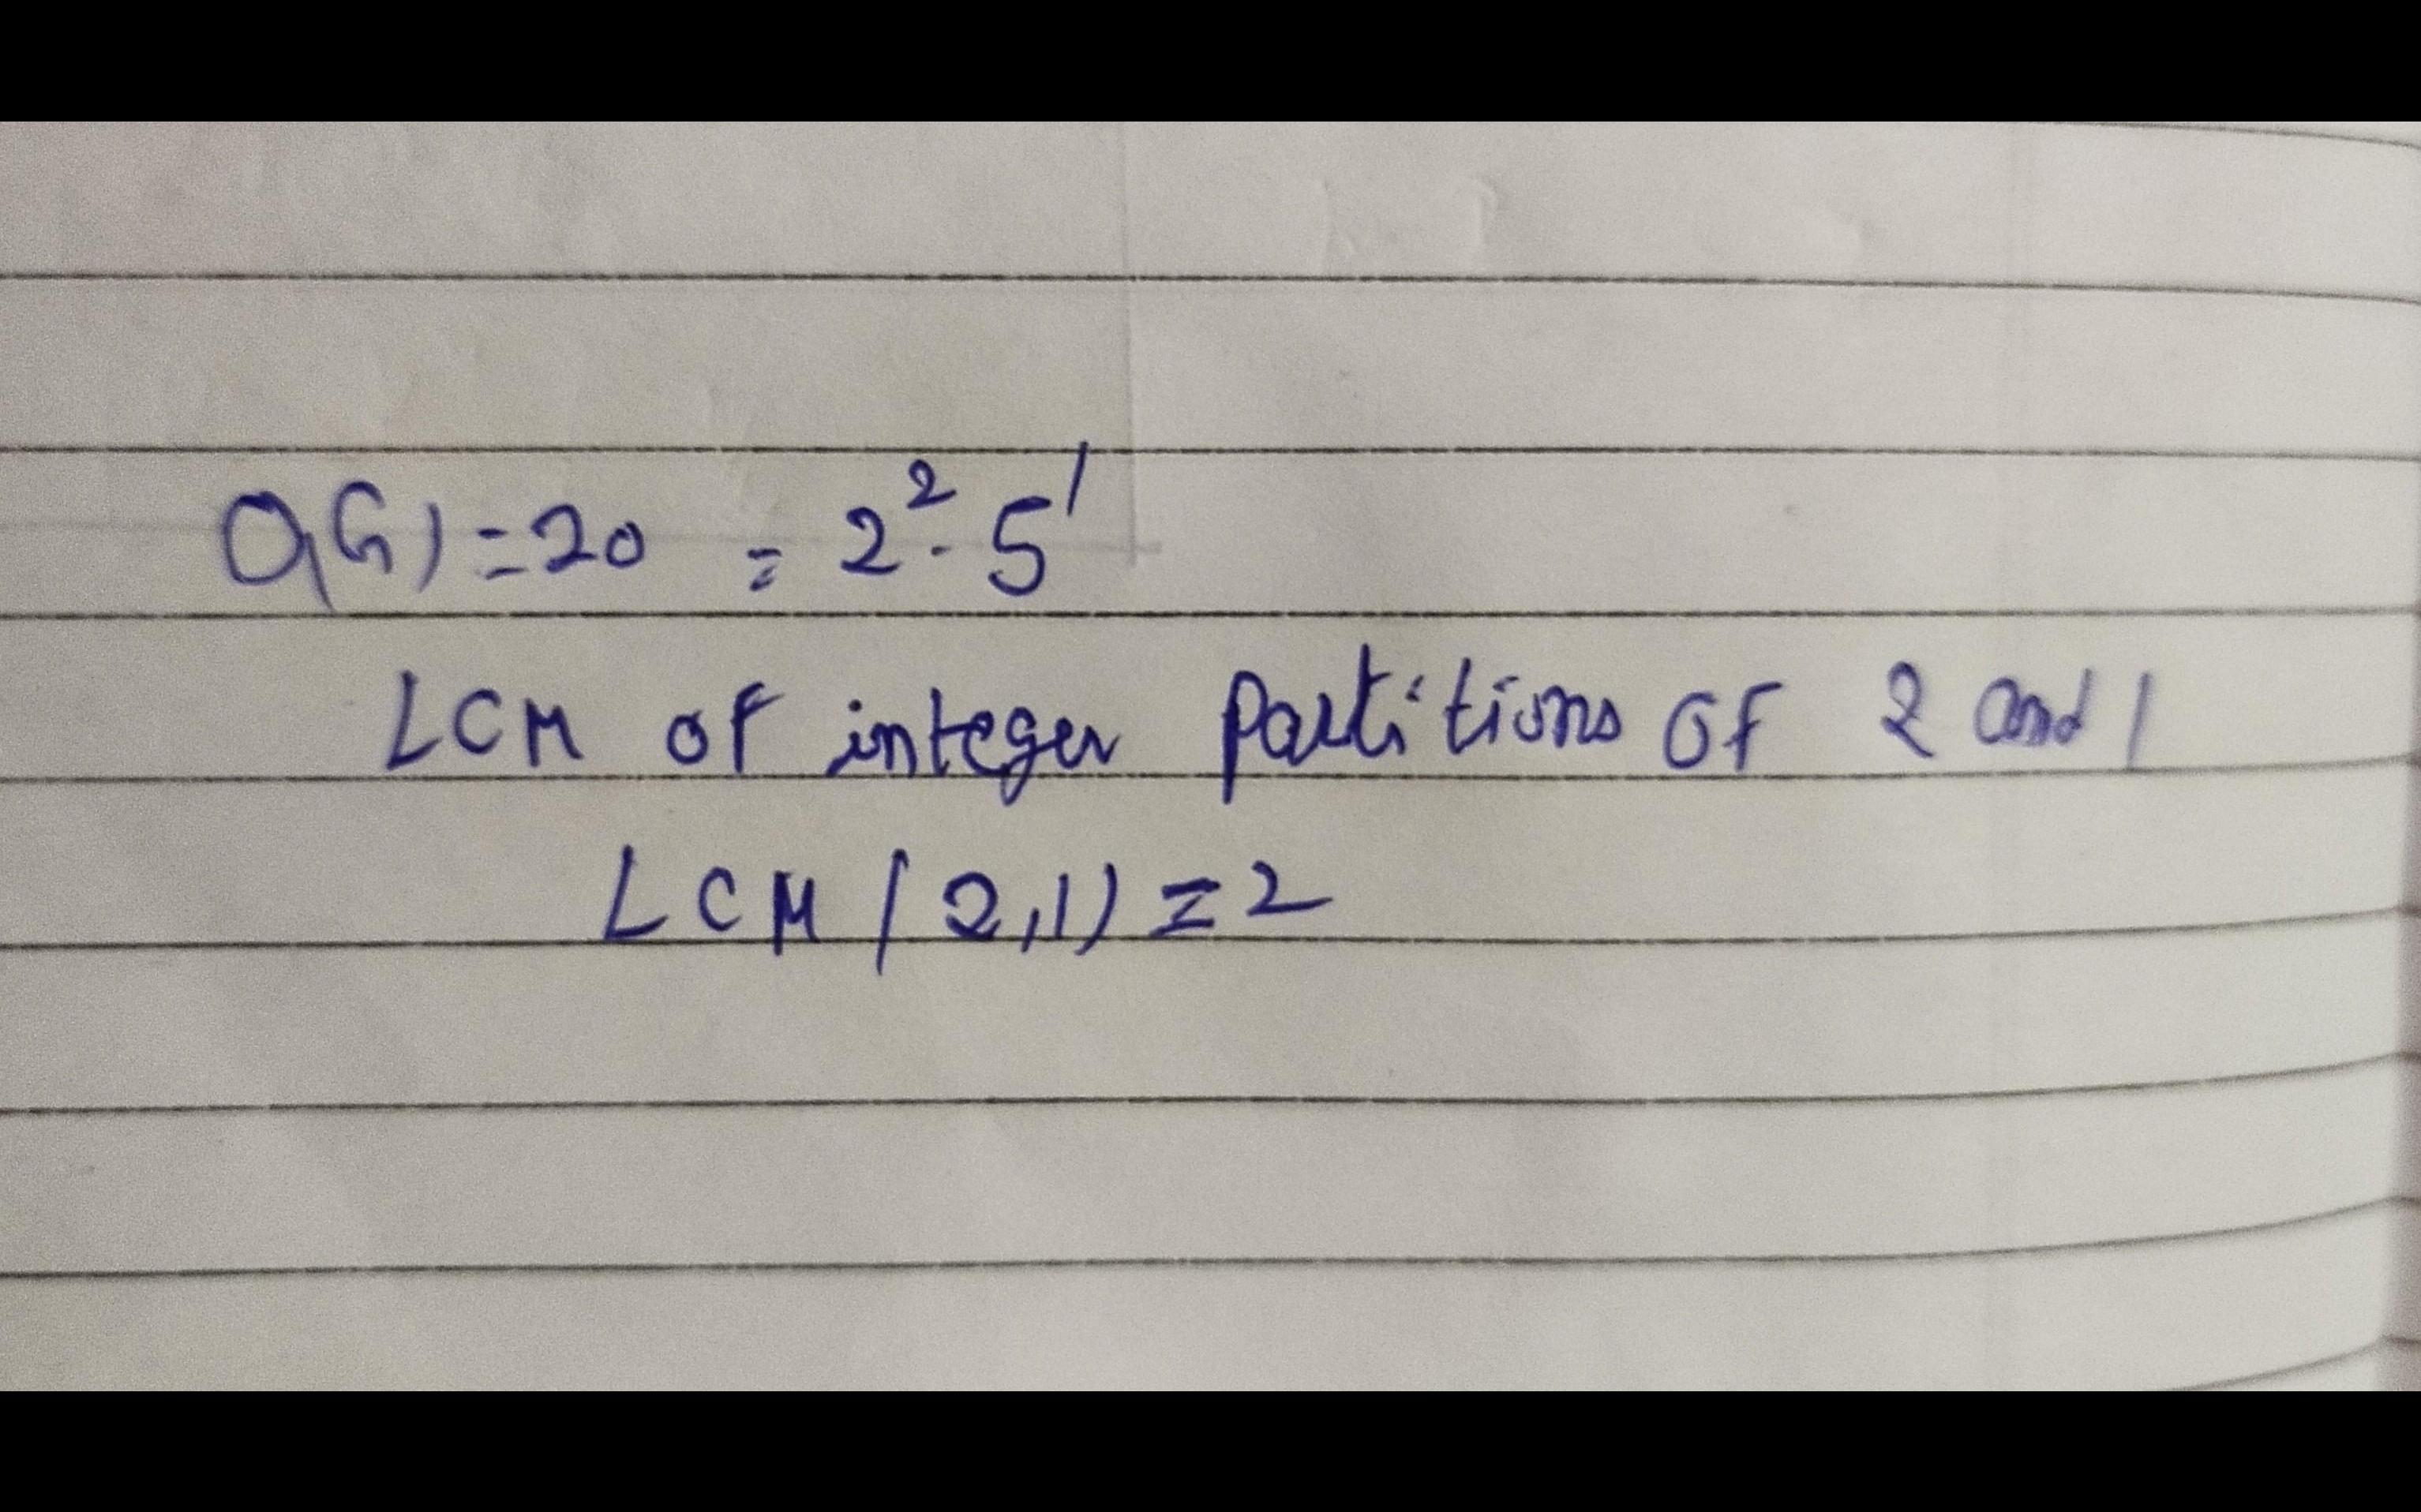 O(G) = 20 = 2² · 5¹
LCM of integer partitions of 2 and 1
LCM (2,1) = 2